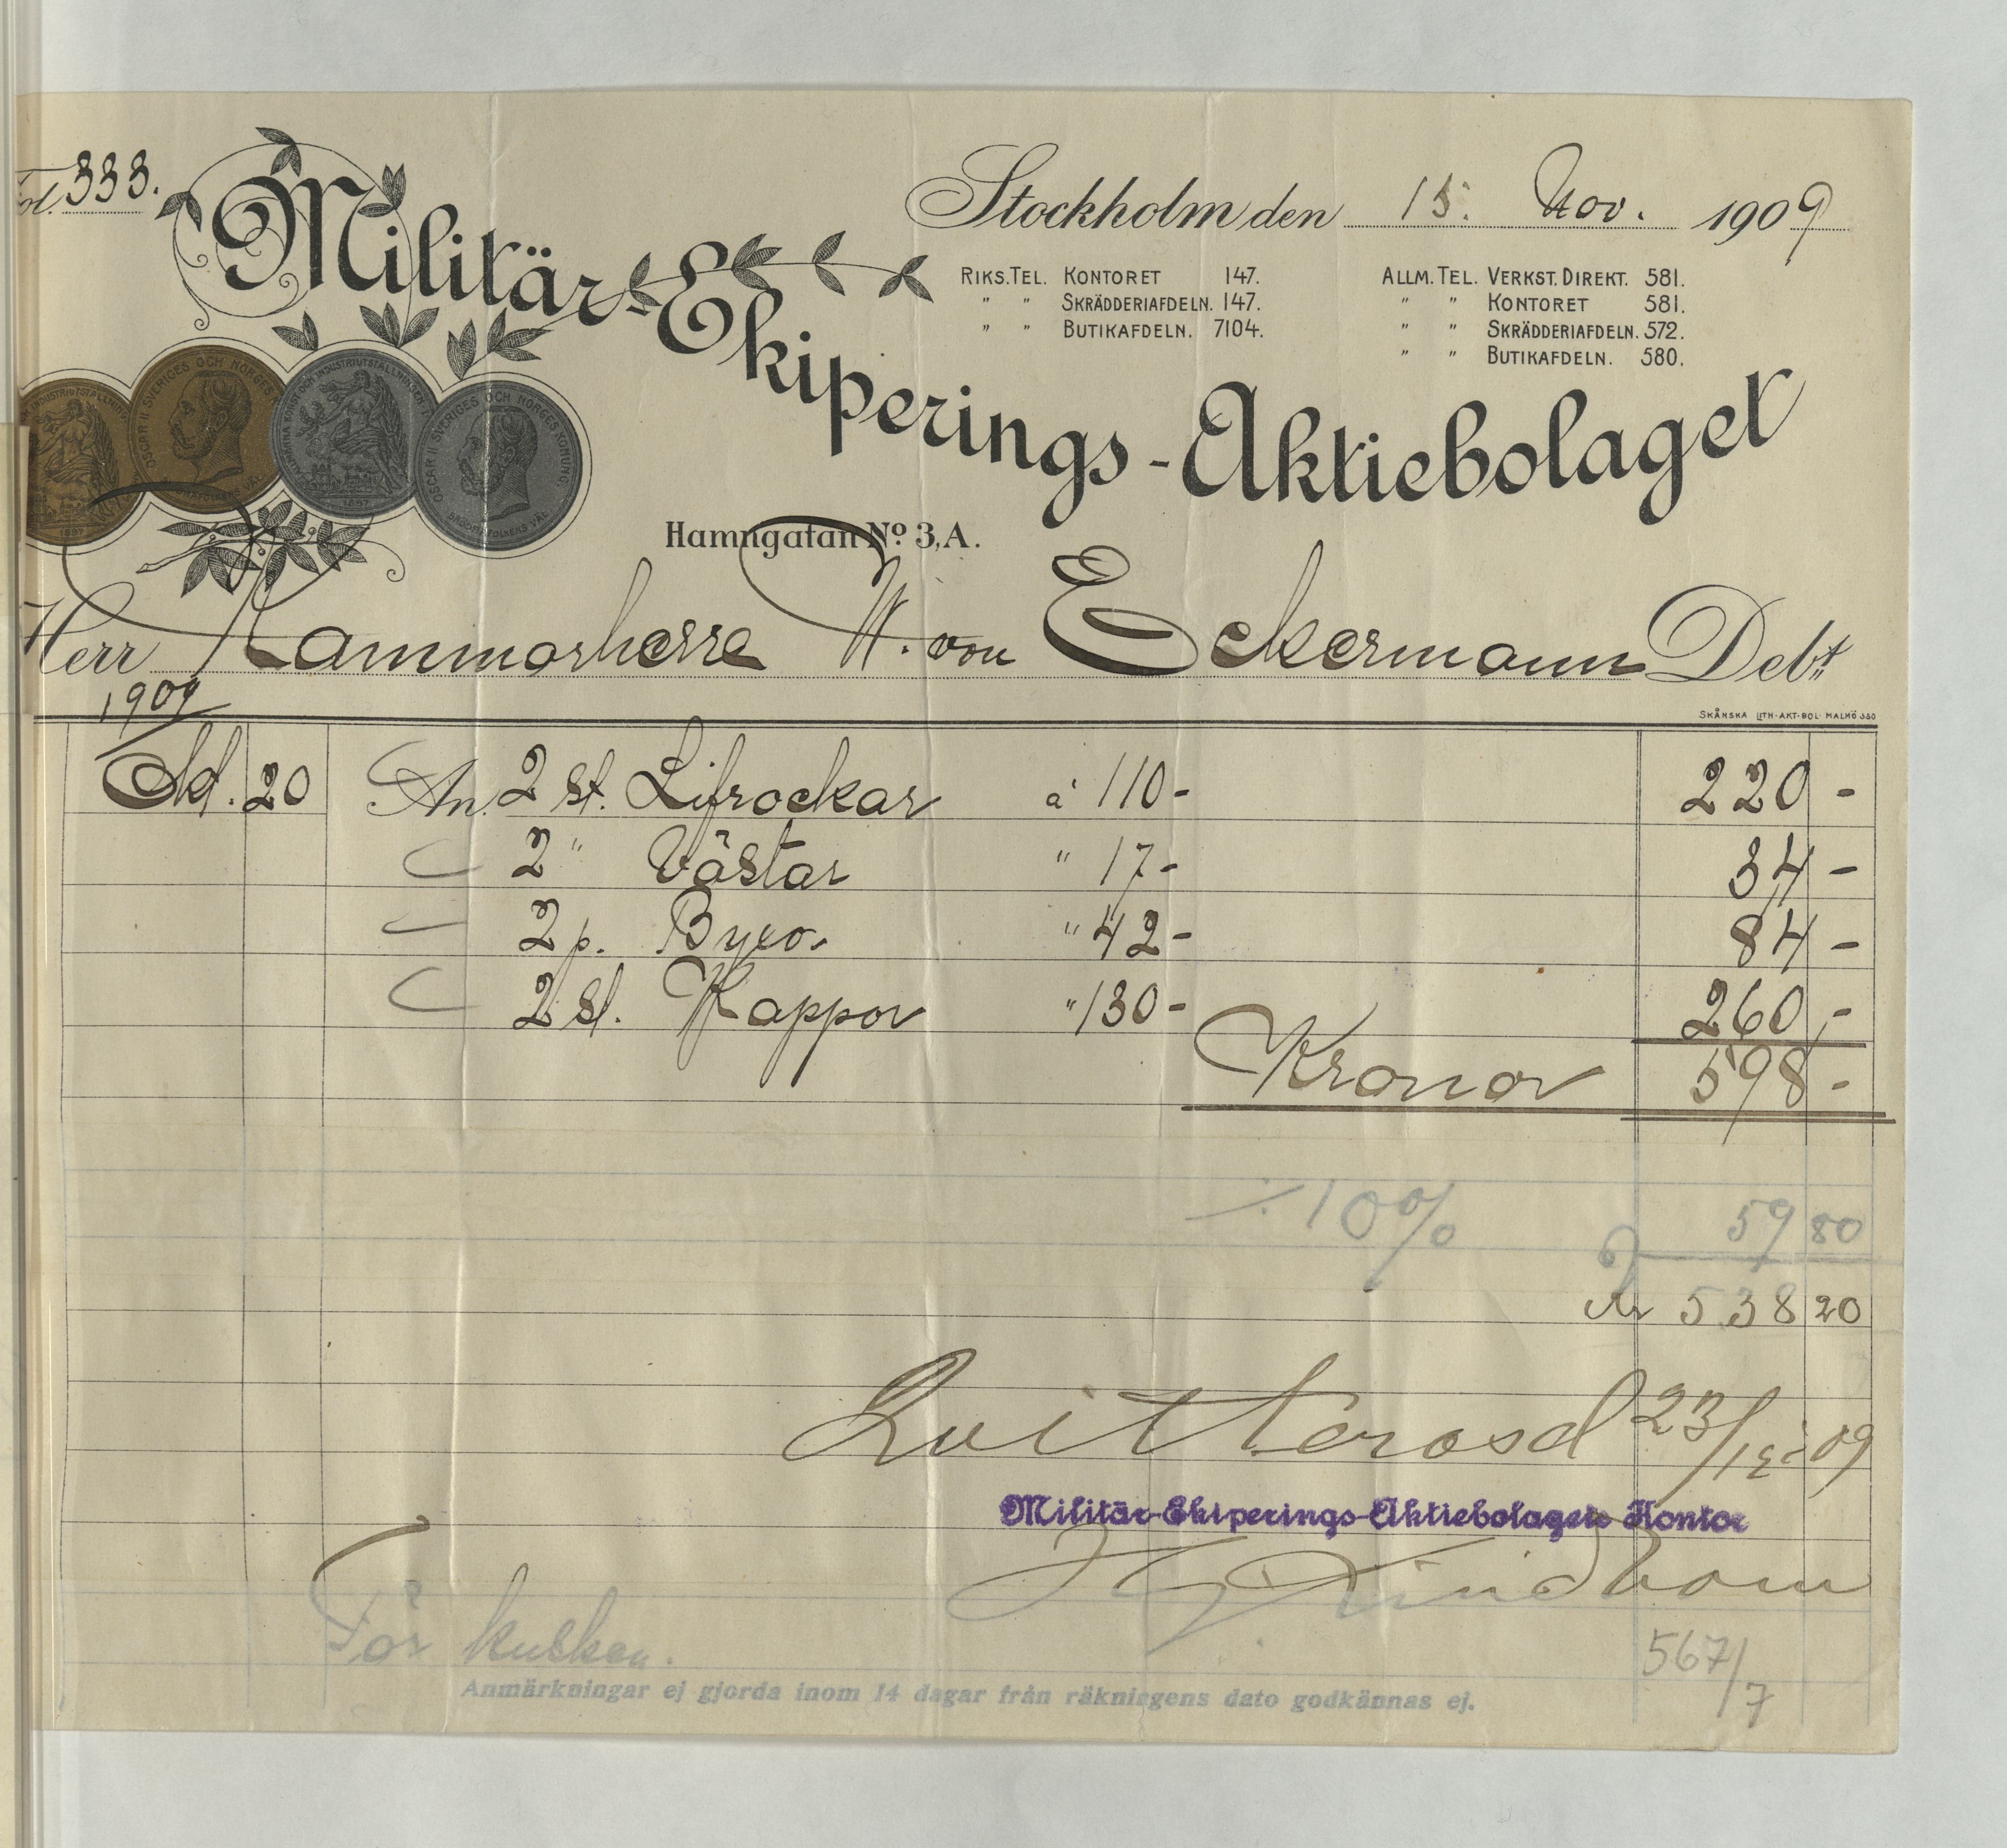 Fol. 333.
Stockholm den 15. Nov. 1909
Militär-Ekiperings-Aktiebolaget
RIKS. TEL. KONTORET 147. ALLM. TEL. VERKST. DIREKT. 581.
" " SKRÄDDERIAFDELN. 147. " " KONTORET 581.
" " BUTIKAFDELN. 7104. " " SKRÄDDERIAFDELN. 572.
" " BUTIKAFDELN. 580.
OSCAR II SVERIGES OCH NORGES
OSCAR II SVERIGES OCH NORGES KONUNG.
BRÖDRAFOLKENS VÄL
1897
Hamngatan No 3, A.
Herr Kammarherre W. von Eckermann Debt
1909
SKÅNSKA LITH-AKT-BOL MALMÖ
Okt. 20 An. 2 st. Lifrockar à 110- 220 -
2 " Västar " 17- 34 -
2 p. Byxor " 42- 84 -
2 st. Kappor " 130- 260,-
Kronor 598 -
÷ 10% 59 80
Kr 538 20
Qvitteras d 23/12 09
Militär-Ekiperings-Aktiebolagets Kontor
Lindbom
För kusken.
567/7
Anmärkningar ej gjorda inom 14 dagar från räkningens dato godkännas ej.